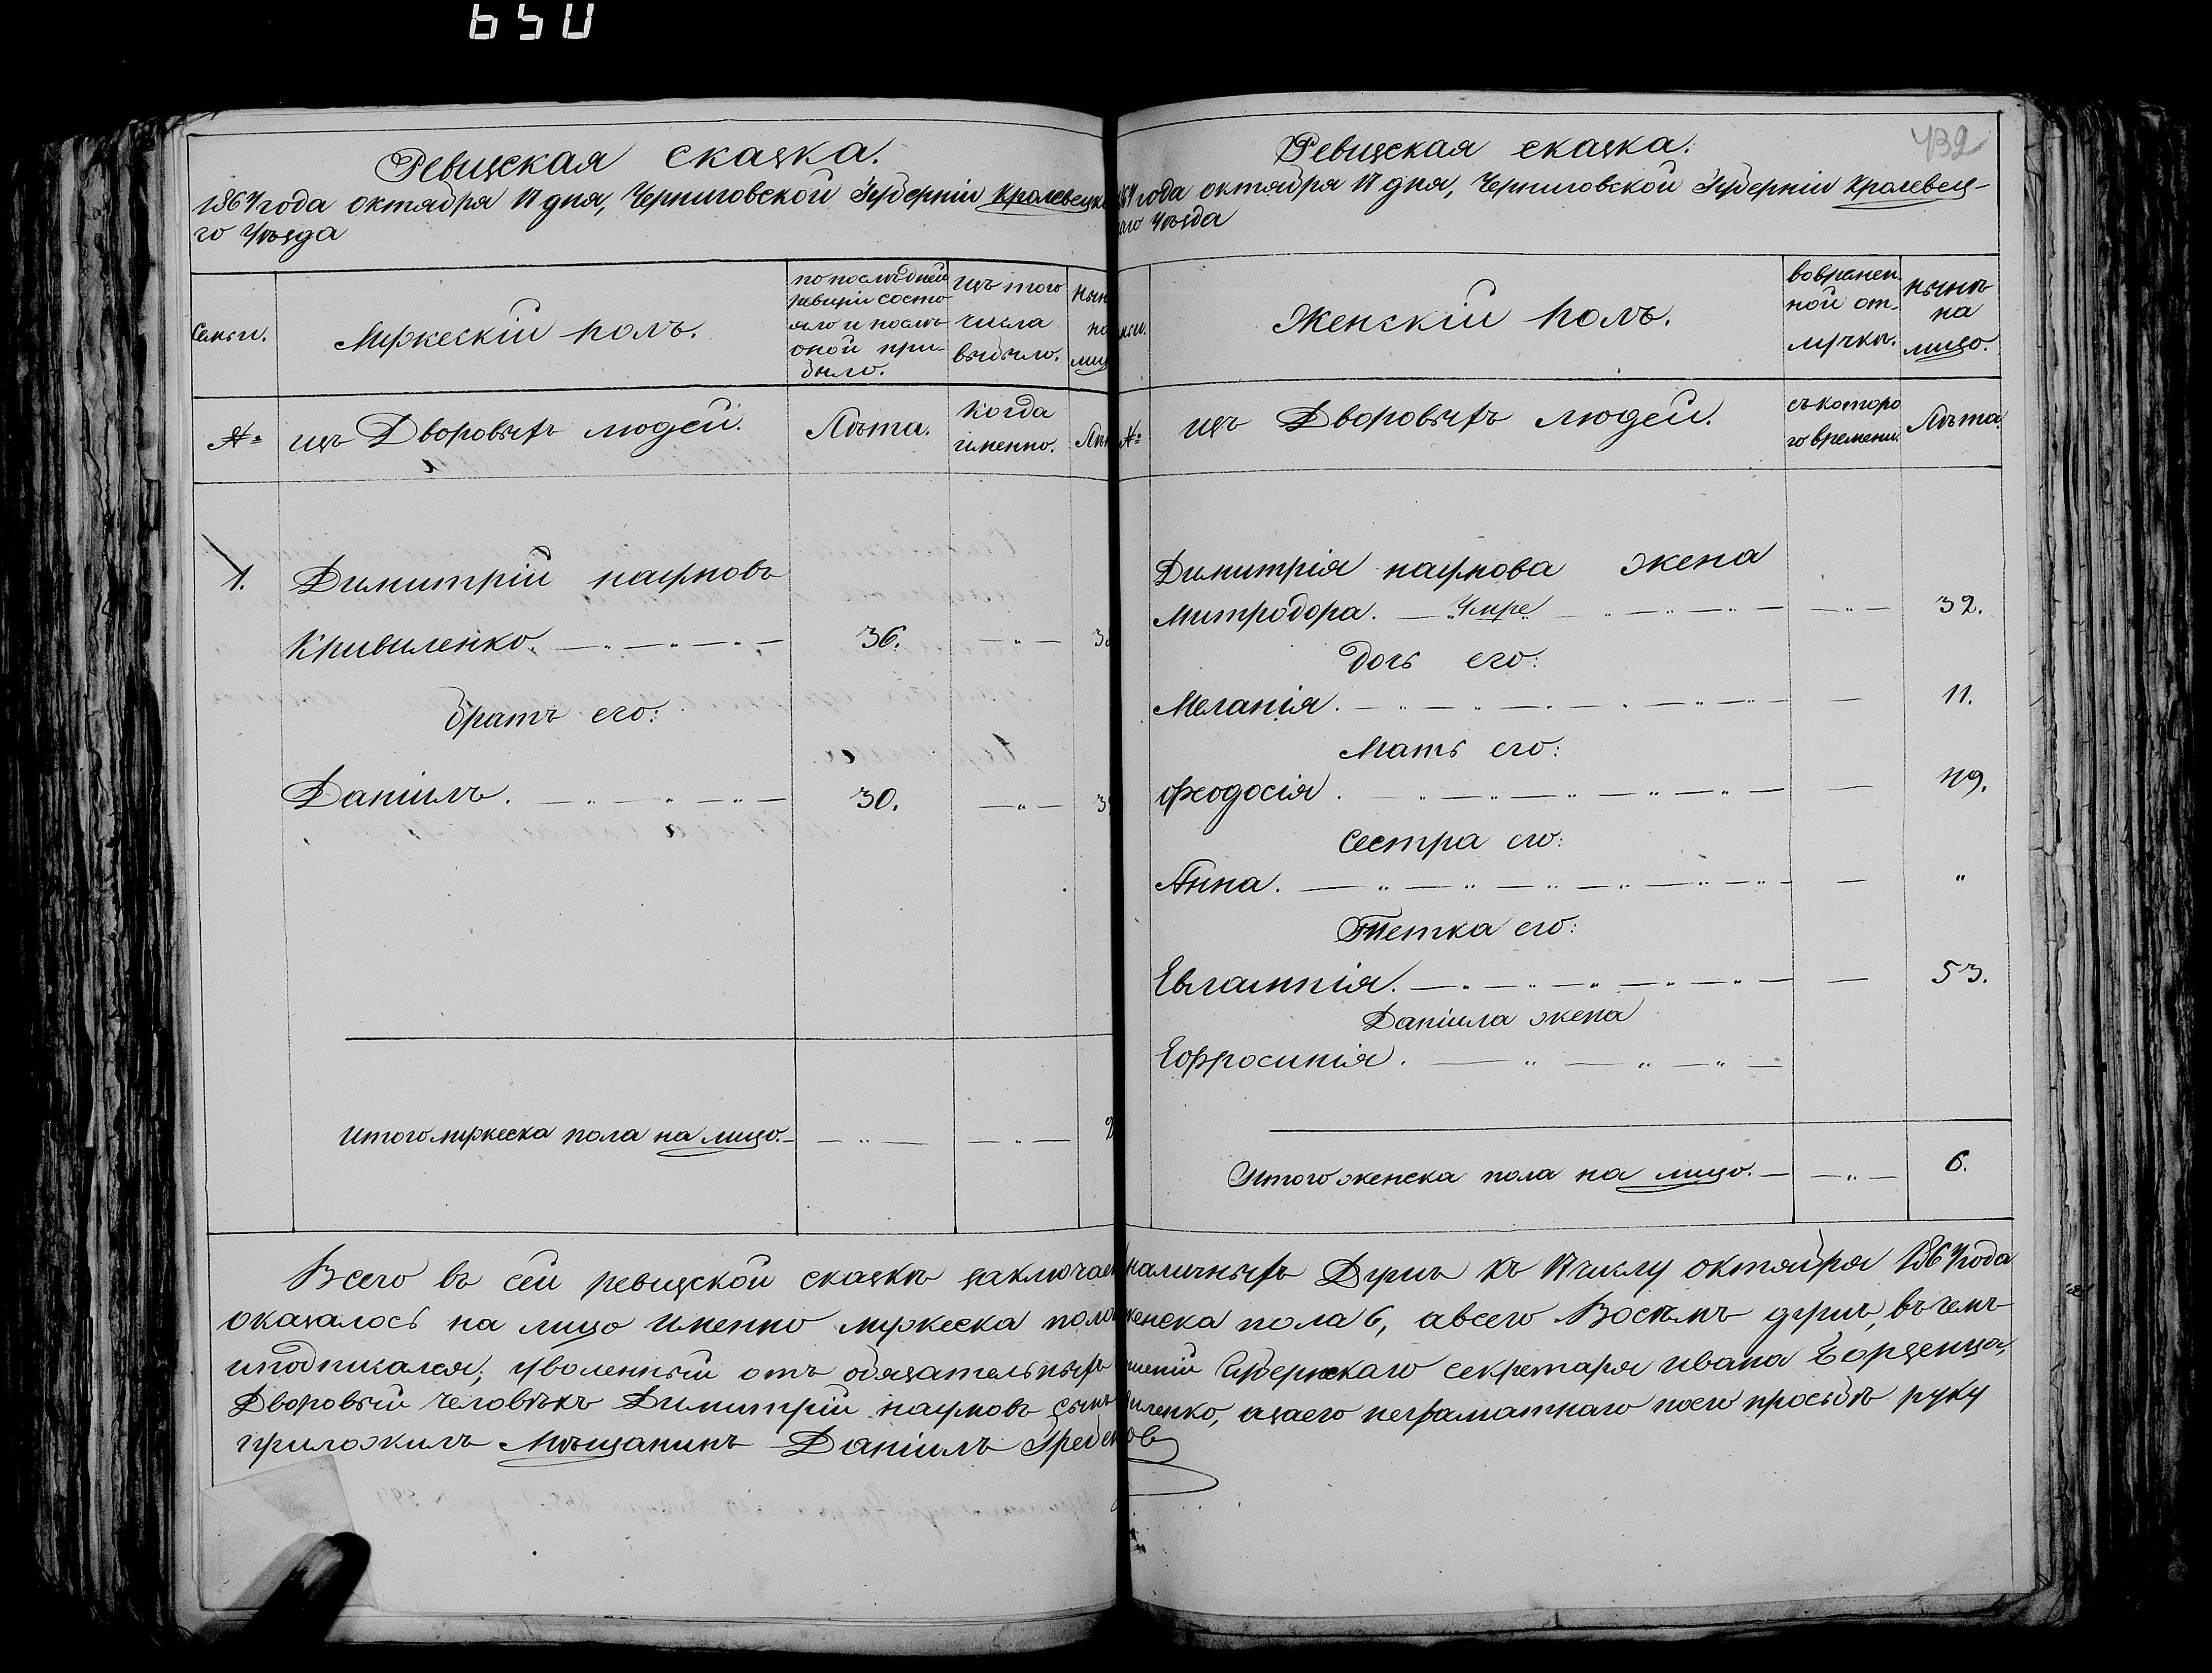 650
Ревизская сказка.
1864 года октября 17 дня, Черниговской Губерніи Кролевецка
го уѣзда
Семьи.
Мужескій полъ.
по послѣдней
ревизіи состо
яло и послѣ
оной при-
было.
изъ того
числа
выбыло.
№
изъ Дворовыхъ людей.
Лѣта.
Когда
именно.
1. Димитрій наумовъ
Кривиленко. 36.
братъ его:
Даніилъ. 30.
Итого мужеска пола на лицо. 2
432
Ревизская сказка.
64 года октября 17 дня, Черниговской Губерніи Кролевец-
аго уѣзда
Женскій полъ.
во времен
ной от-
лучкѣ.
нынѣ
на
лицо.
№
изъ Дворовыхъ людей.
съ которо
го времени.
Лѣта.
Димитрія наумова жена
Митродора. Умре 32.
дочь его:
Меланія. 11.
Мать его:
Феодосія. 49.
Сестра его:
Анна. "
Тетка его:
Евлампія. 53.
Даніила жена
Ефросинія.
Итого женска пола на лицо. 6.
Всего въ сей ревизской сказкѣ заключае наличныхъ Душъ къ 17 числу октября 1864 года
оказалось на лицо именно мужеска пола женска пола 6, а всего Восемь душъ, въ чемъ
и подписался, уволенный отъ обязательныхъ Губернскаго секретаря ивана
Дворовый человѣкъ Димитрій наумовъ сынъ виленко, а за его неграматнаго по его просьбѣ руку
приложилъ Мѣщанинъ Даніилъ Гребенков